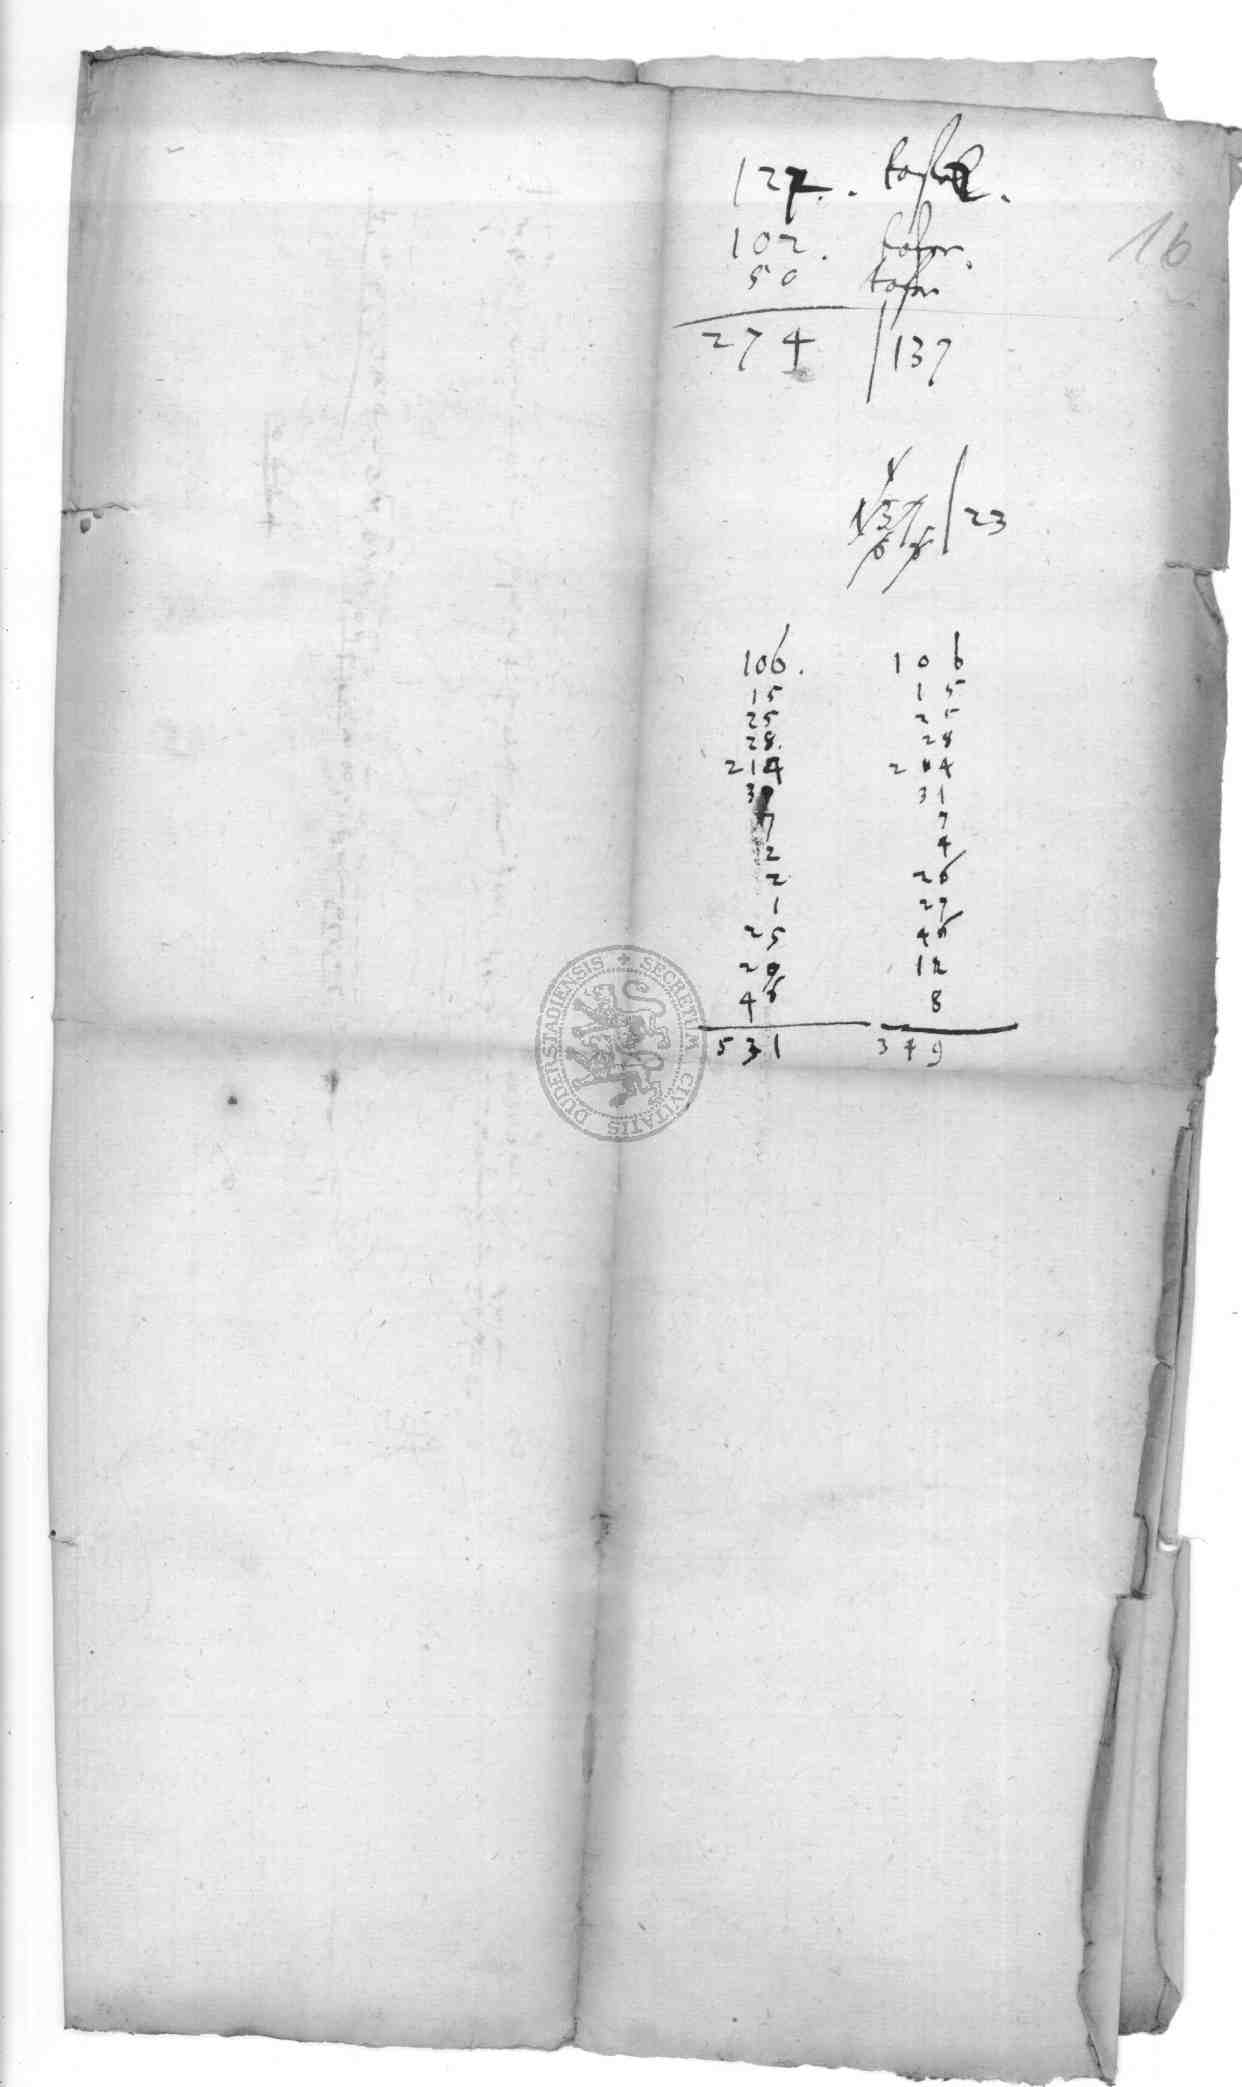 127.
102.
50
274 | 137
16
137 | 23
66
106. 106
15 15
25 25
28. 28
214 204
31
7 7
2 4
2 26
1 27
25 46
29 12
46 8
531 349
DUDERSTADIENSIS + SECRETUM CIVITATIS